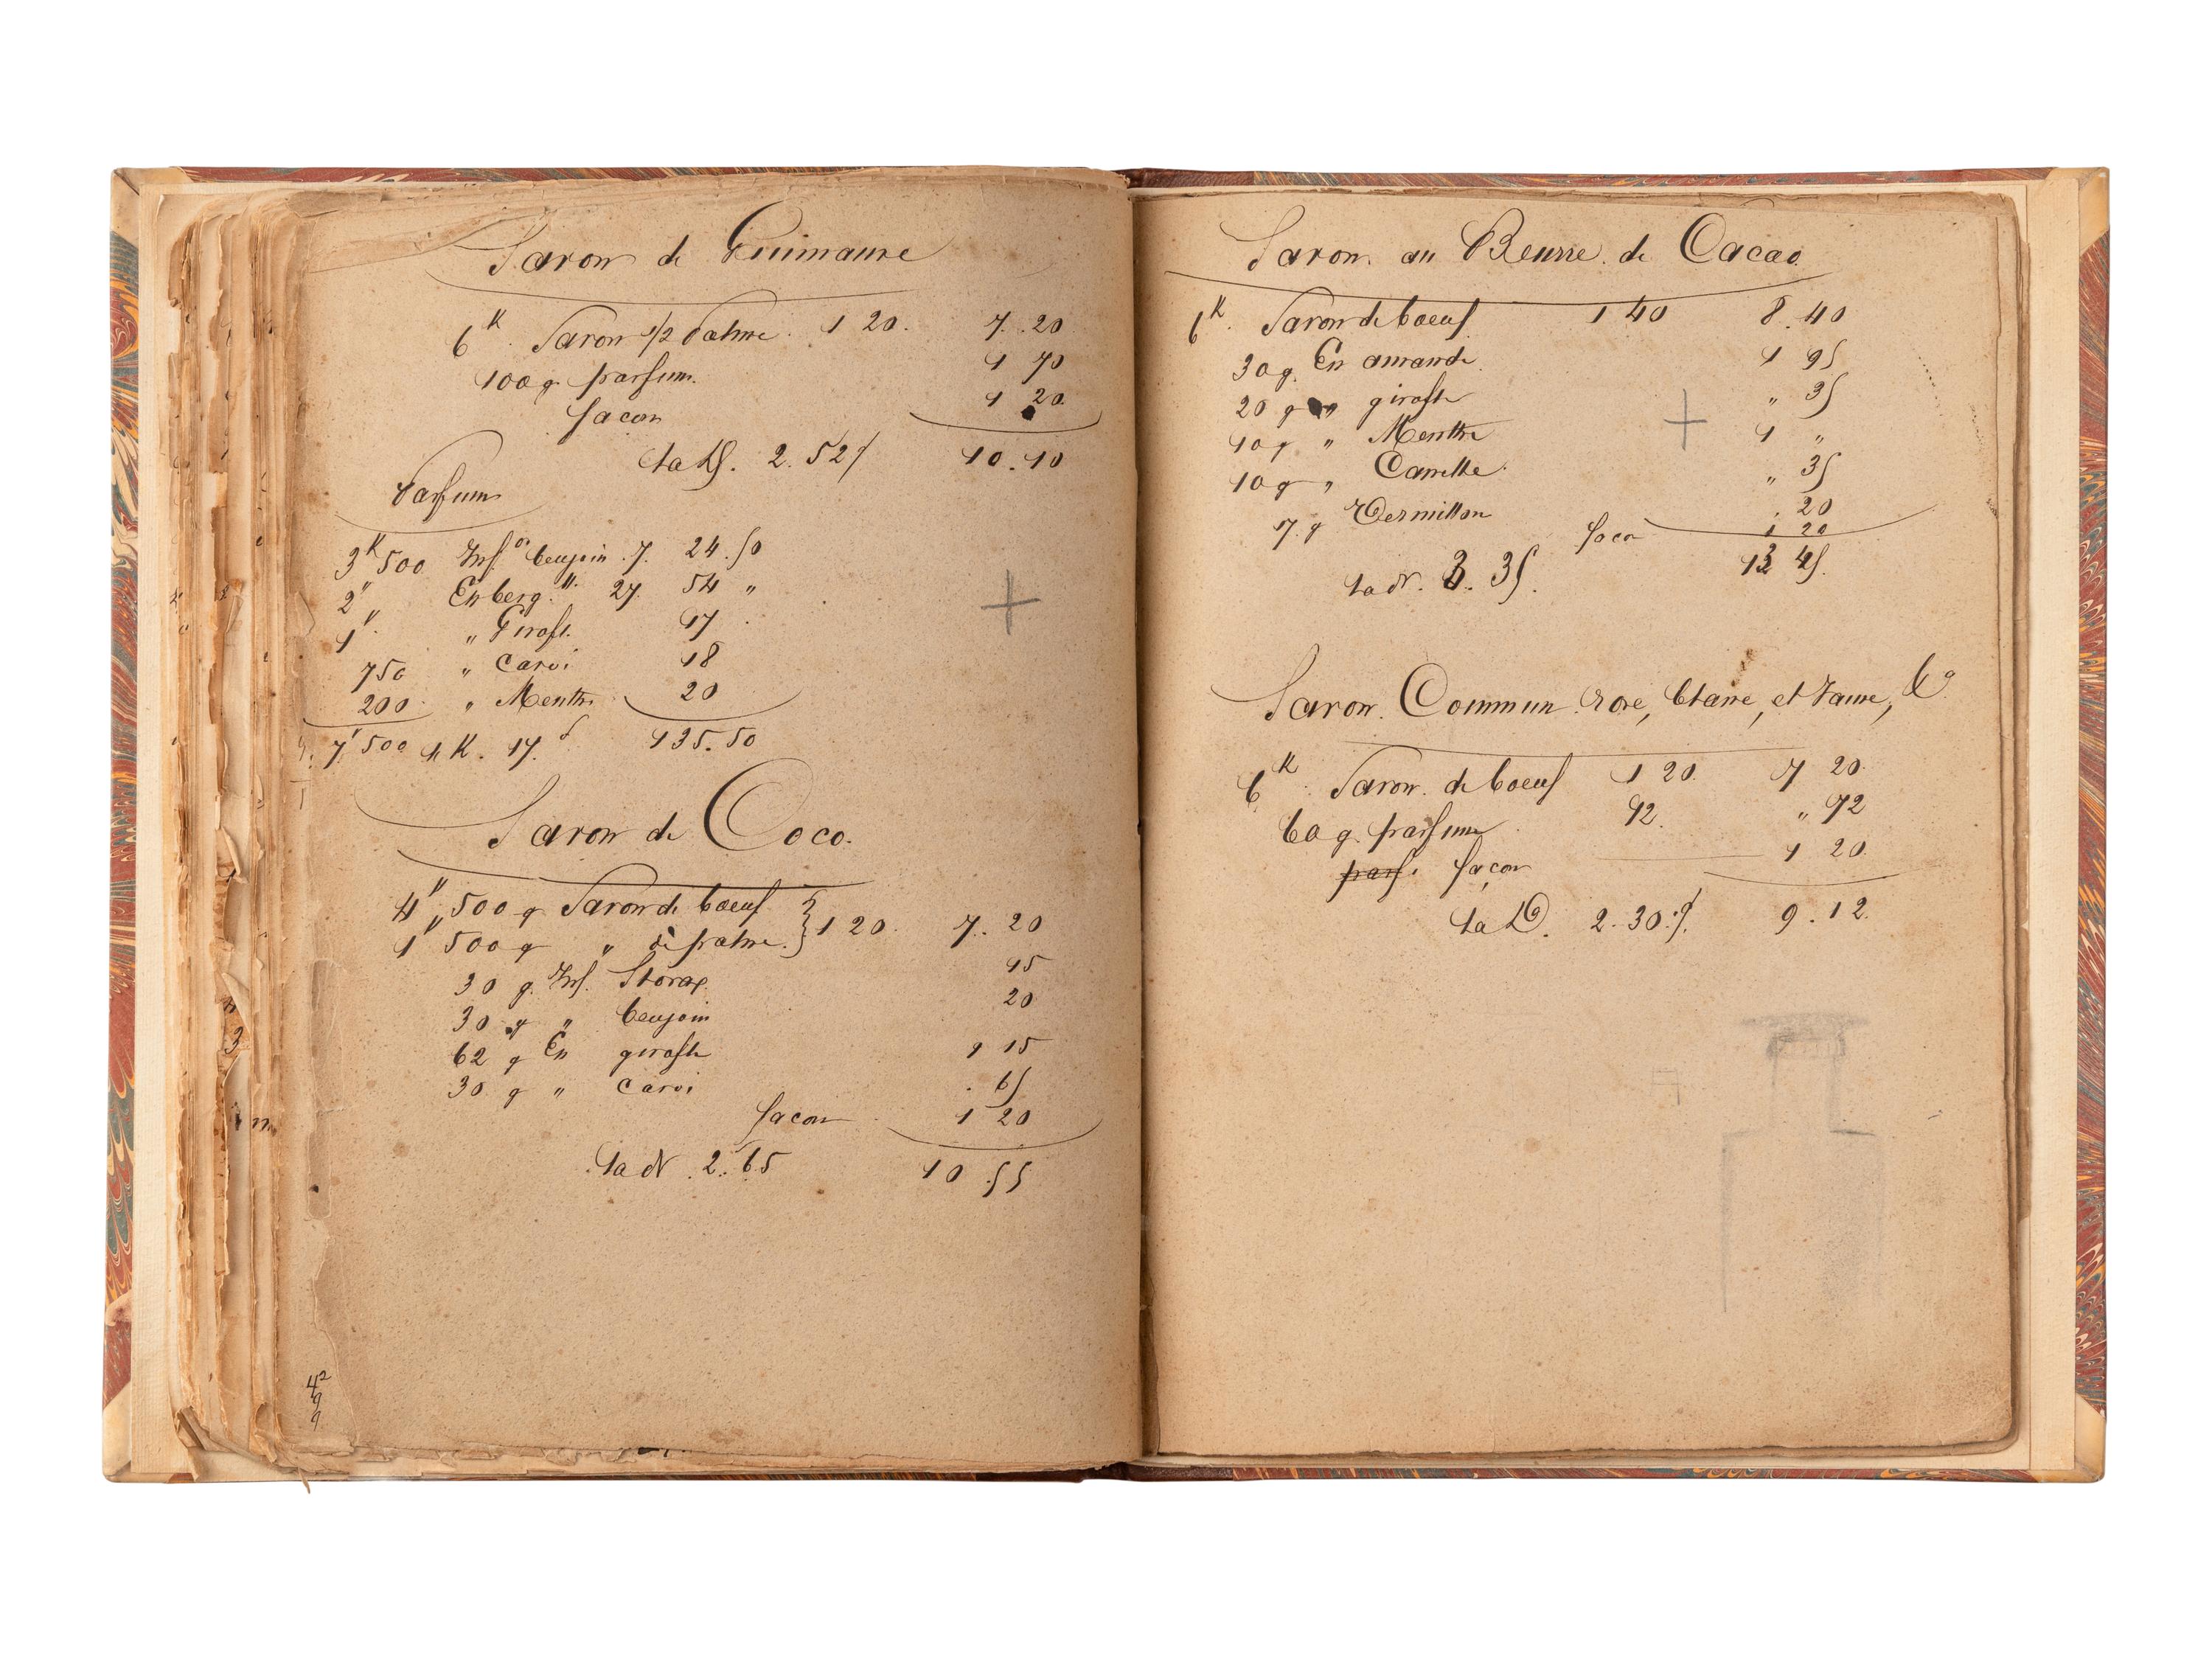 Savon de Guimauve
6K. Savon 1/2 Palme. 1 20. 7. 20
100 g. parfum. 1 70
façon 1 20
la Dz. 2. 52 1/2 10. 10
Parfum
3K 500 Inf.on benjoin. 7. 24. 50
2" " Es berg. 27. 54 "
1" " Girofl. 17
750 " Carvi 18
200 " Menthe 20
7K 500 le K. 17. f 135. 50
Savon de Coco.
4" 500 g Savon de boeuf
1" 500 g " de palme. } 1 20. 7. 20
30 g. Inf. Storax 15
30 g " benjoin 20
62 g Es girofle 1 15
30 g " carvi . 65
façon 1 20
la dz. 2. 65 10. 55
42
9
9
Savon. au Beurre. de Cacao.
6K. Savon de boeuf 1 40 8. 40
30 g. Es amande. 1 95
20 g " girofle " 35
10 g " Menthe 1 "
10 g " Canelle. " 35
17. g Vermillon . 20
façon 1 20
la dz. 3. 35. 13 45.
Savon. Commun. rose, blanc, et Jaune,
6K. Savon. de boeuf 1 20. 7 20
60 g. parfum. 12. " 72
parf. façon 1 20.
la Dz. 2. 30. 9. 12.